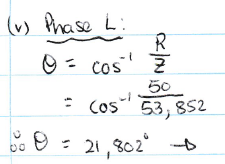 (v) Phase L:
θ = cos⁻¹ R/Z
= cos⁻¹ 50/53,852
∴ θ = 21,802° →